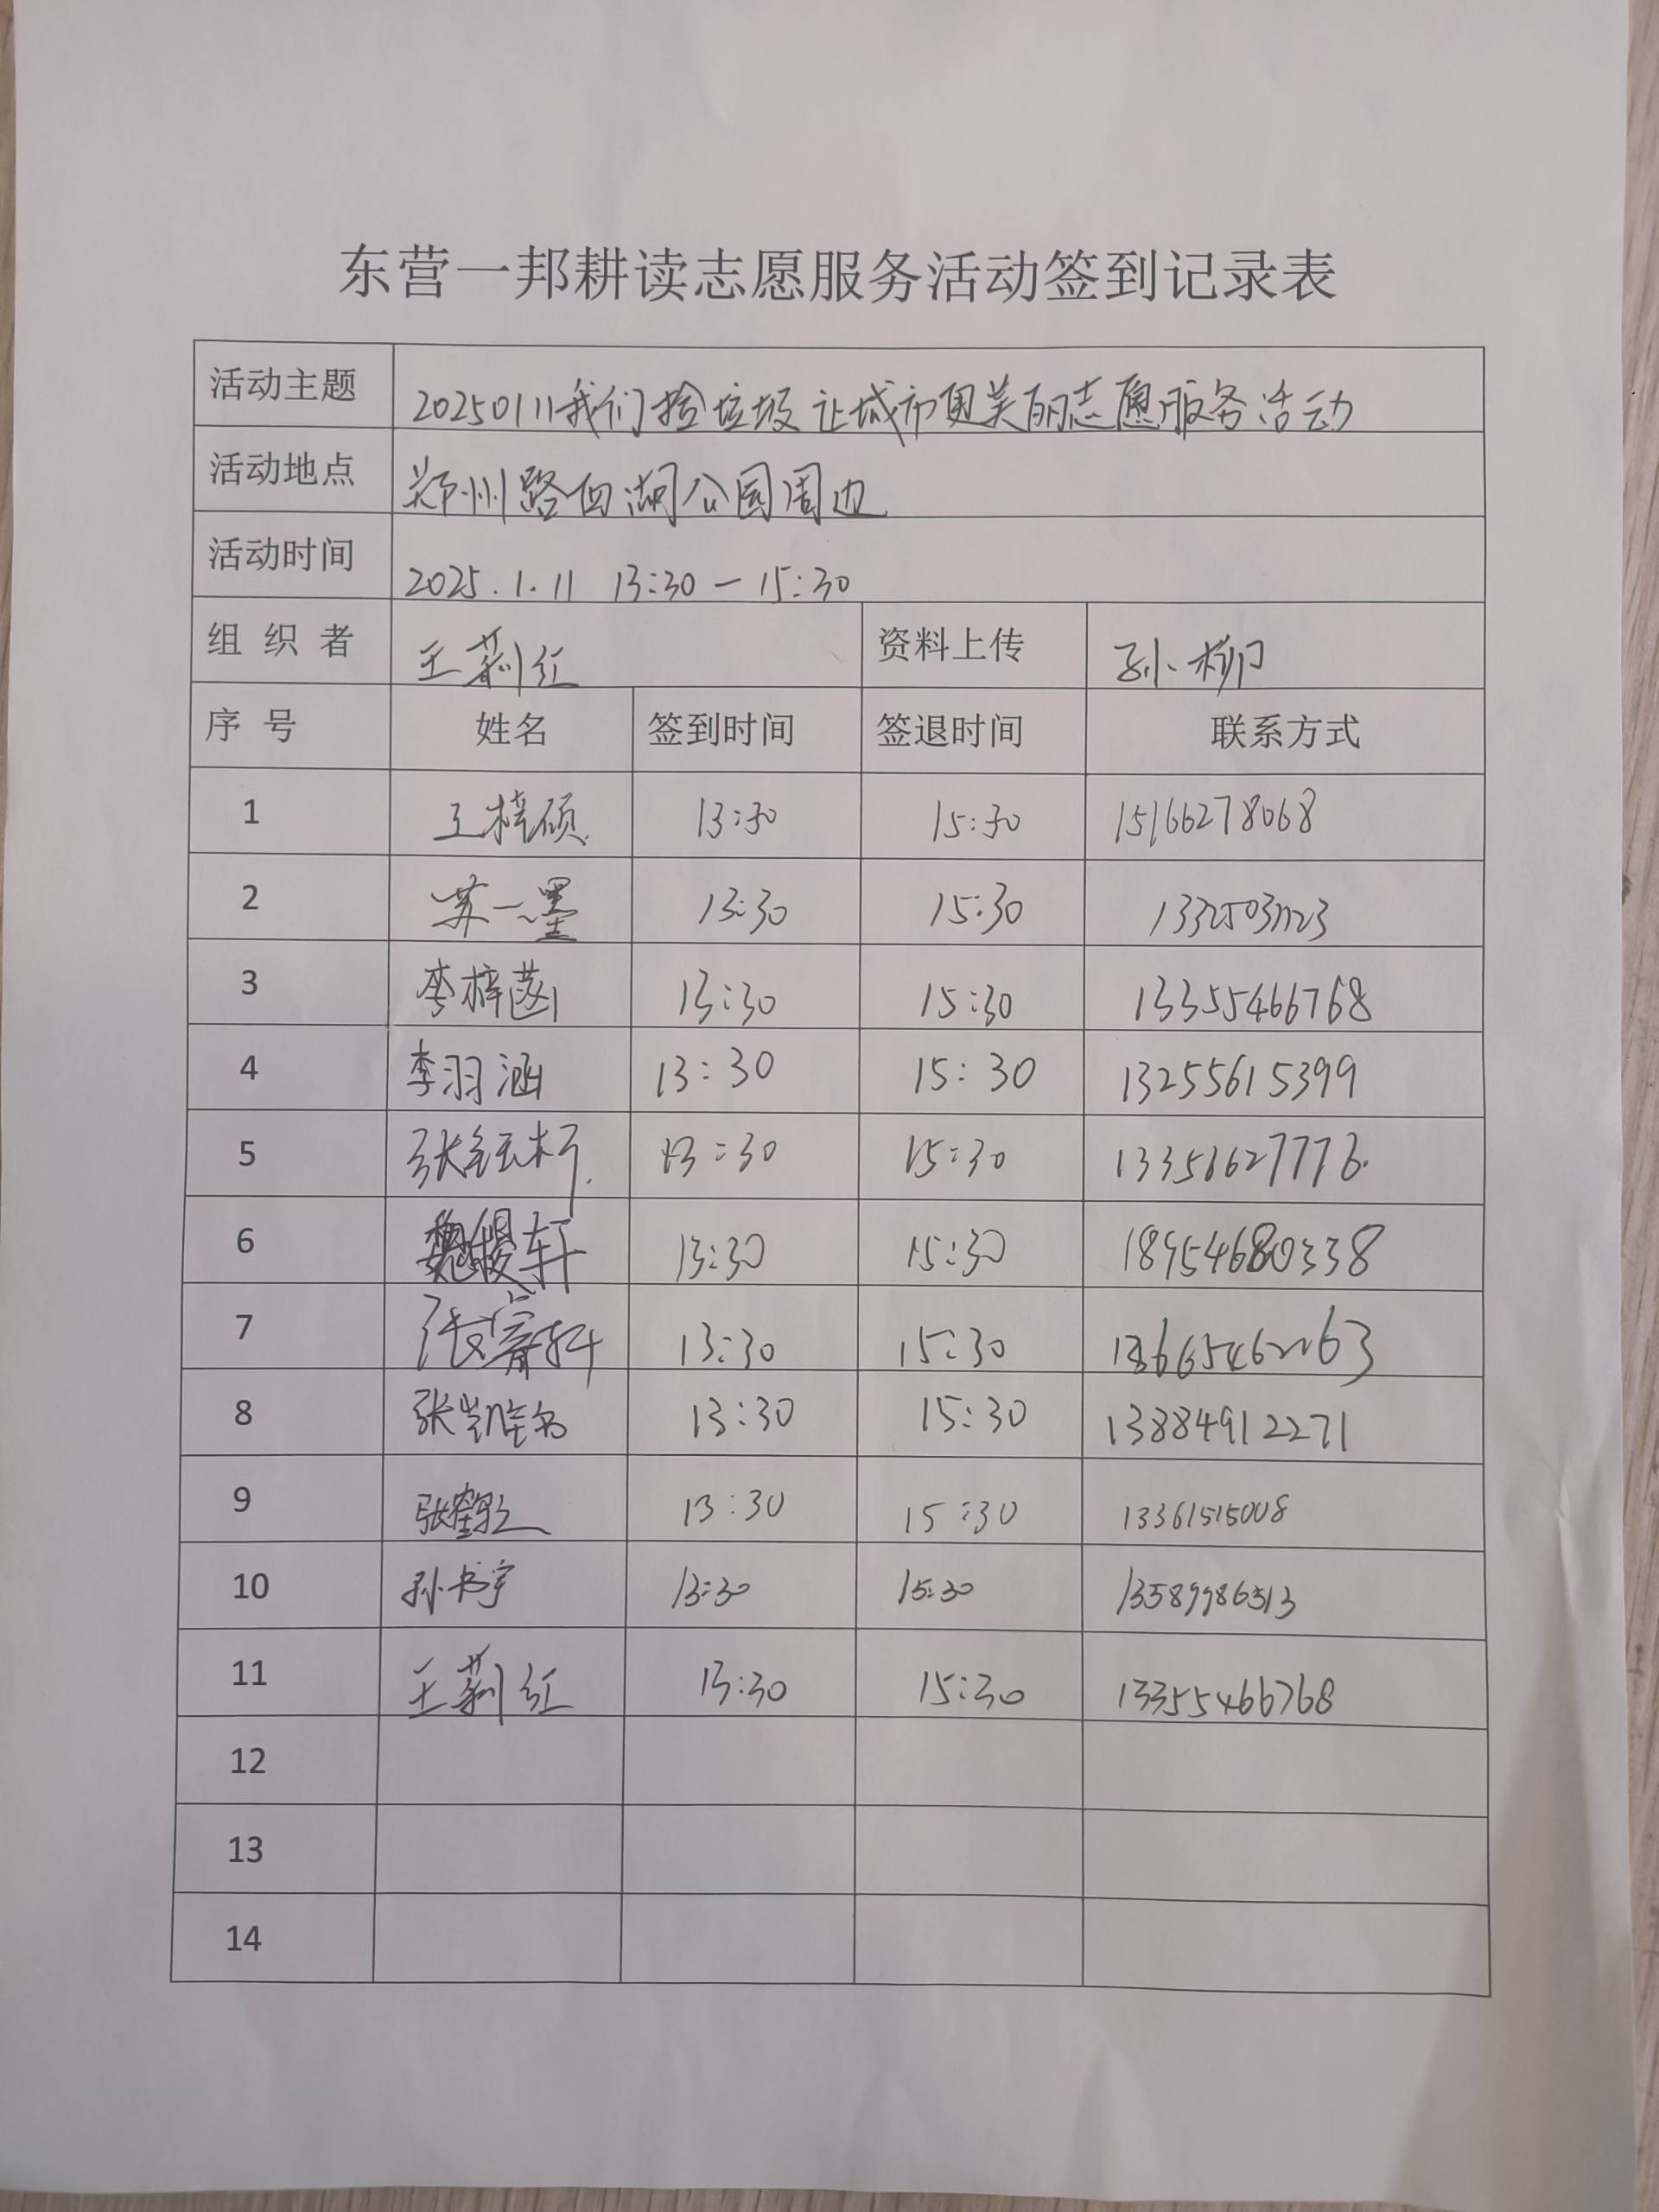 东营一邦耕读志愿服务活动签到记录表
活动主题 20250111我们捡垃圾让城市更美丽志愿服务活动
活动地点 郑州路西湖公园周边
活动时间 2025.1.11 13:30—15:30
组织者 王莉红 资料上传 孙柳
序号 姓名 签到时间 签退时间 联系方式
1 王梓硕 13:30 15:30 15166278068
2 苏一墨 13:30 15:30
3 李梓菡 13:30 15:30 13355466768
4 李羽涵 13:30 15:30 13255615399
5 13:30 15:30
6 13:30 15:30 18954680338
7 13:30 15:30
8 13:30 15:30 13884912271
9 13:30 15:30 13361515008
10 孙书宇 13:30 15:30 13589986513
11 王莉红 13:30 15:30 13355466768
12
13
14